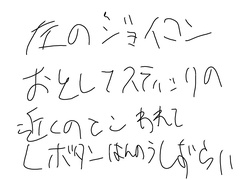 左のジョイコン
おとしてスティックの
近くのとこ われて
Lボタンはんのうしずらい